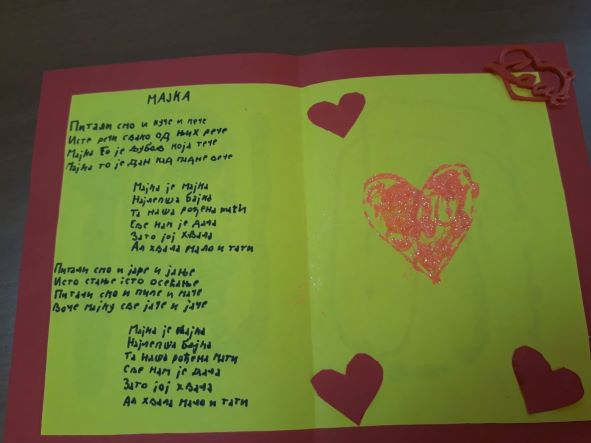 МАЈКА
Питали смо и куче и пече
Исте речи свако од њих рече
Мајка то је љубав која тече
Мајка то је дан кад падне вече
Мајка је мајка
Најлепша бајка
Та наша рођена мати
Све нам је дала
Зато јој хвала
Ал хвала мало и тати
Питали смо и јаре и јање
Исто стање исто осећање
Питали смо и пиле и маче
Воле мајку све јаче и јаче
Мајка је мајка
Најлепша бајка
Та наша рођена мати
Све нам је дала
Зато јој хвала
Ал хвала мало и тати